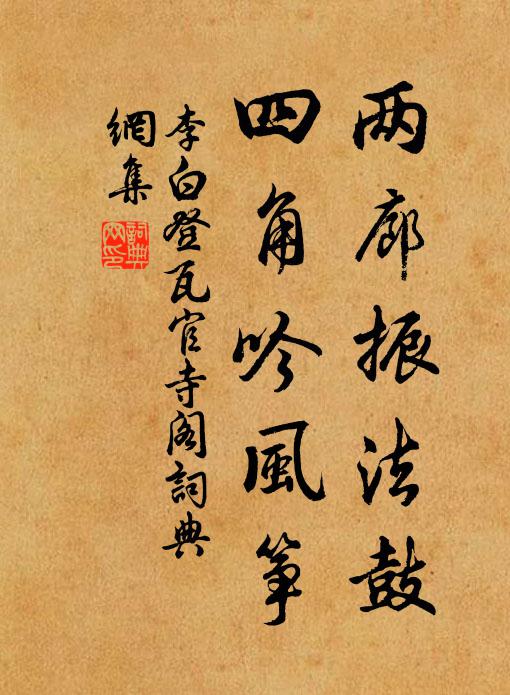 两廊振法鼓
四角吟風箏
李白登瓦官寺阁詞典
網集
詞典
网印